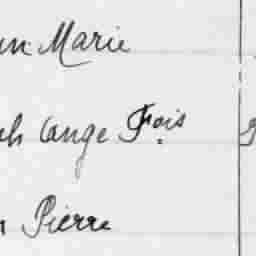 Marie
Ange Fois
Pierre